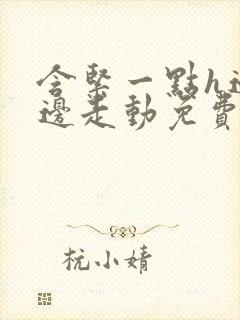 含緊一點h邊
邊走動免費
杭小婧